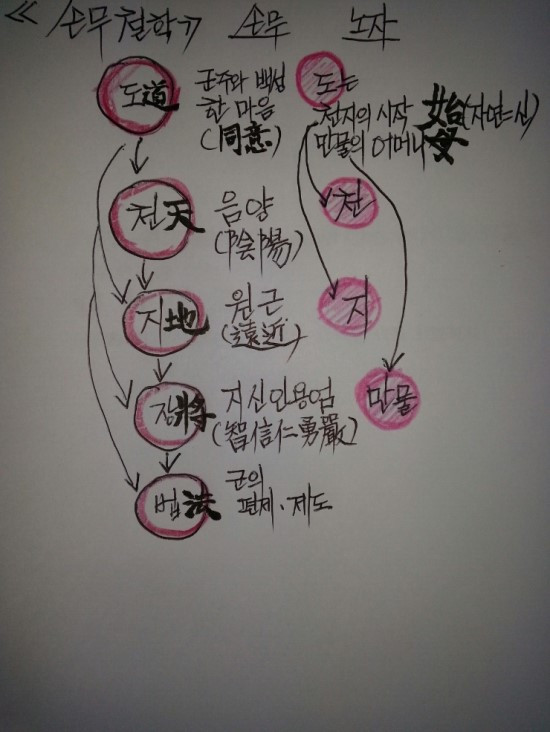 ≪손무철학≫ 손무 노자
도道 군주와 백성
한 마음
(同意)
도는
천지의 시작 始(자연=신)
만물의 어머니 母
천天 음양
(陰陽)
천
지地 원근
(遠近)
지
장將 지신인용엄
(智信仁勇嚴)
만물
법法 군의
편제、제도